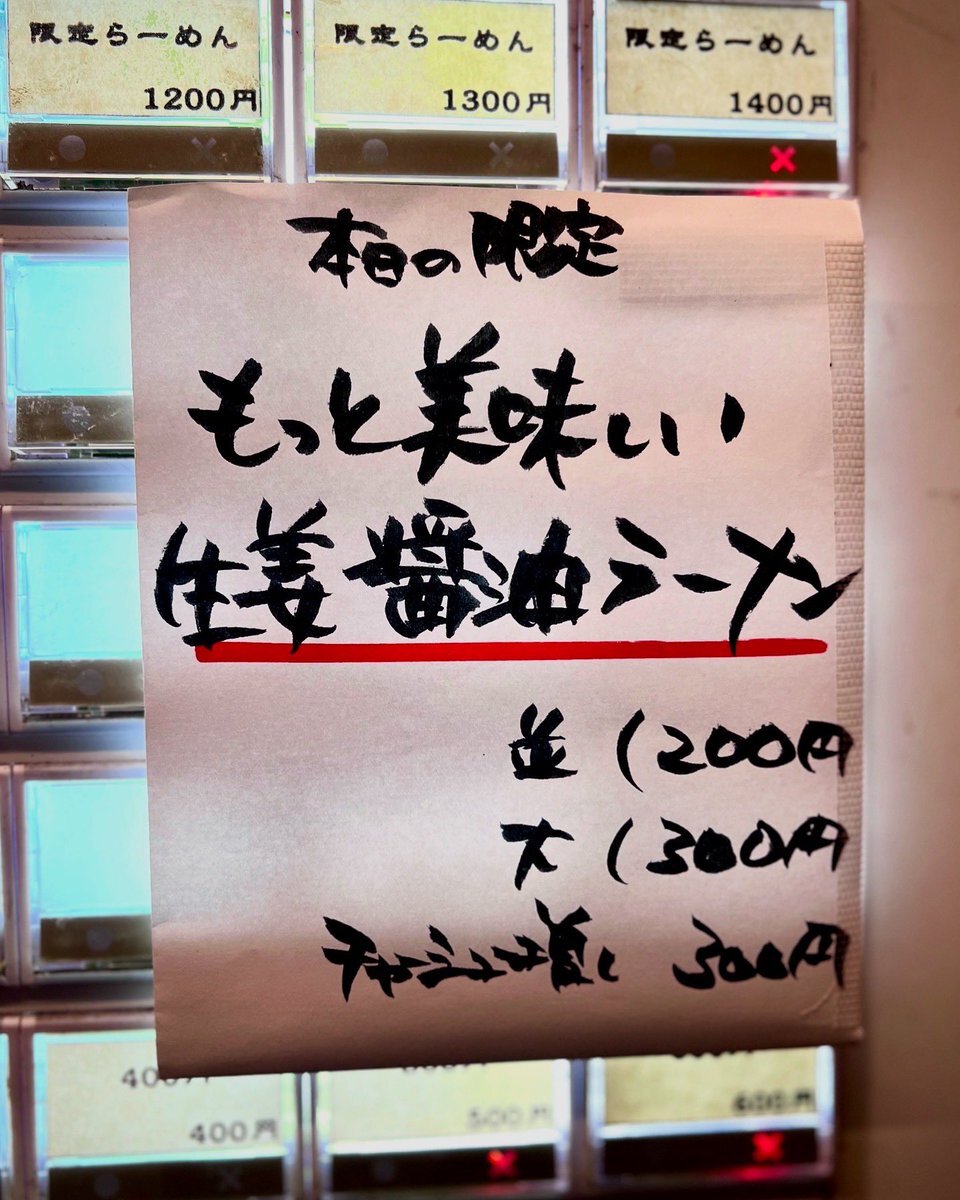 限定らーめん 限定らーめん 限定らーめん
1200円 1300円 1400円
本日の限定
もっと美味しい
生姜醤油ラーメン
並 1200円
大 1300円
チャーシュー増し 300円
400円 500円 600円